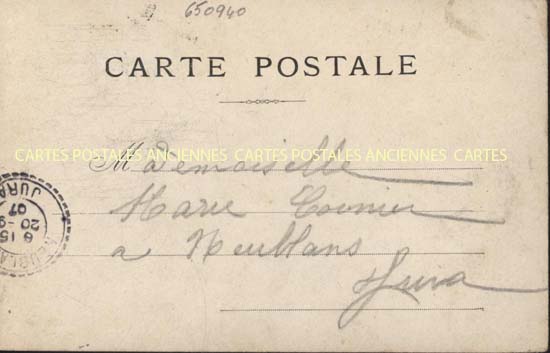 650940
CARTE POSTALE
CARTES POSTALES ANCIENNES CARTES POSTALES ANCIENNES CARTES
Mademoiselle
Marie
a Neublans
Jura
JURA
6 15
20 -9
07